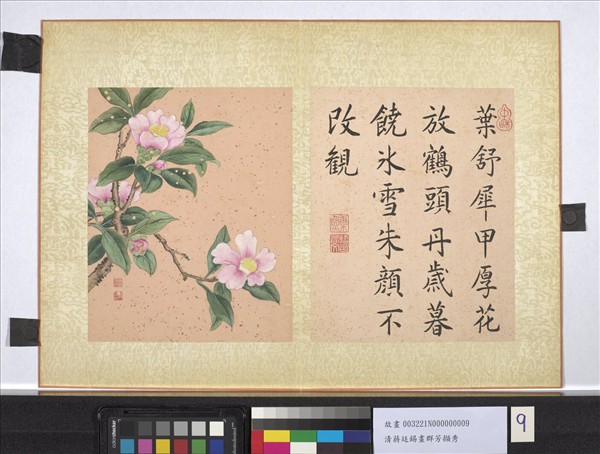 葉舒犀甲厚花
放鶴頭丹歲暮
饒冰雪朱顏不
改觀
故畫 003221N000000009
清蔣廷錫畫群芳擷秀
9